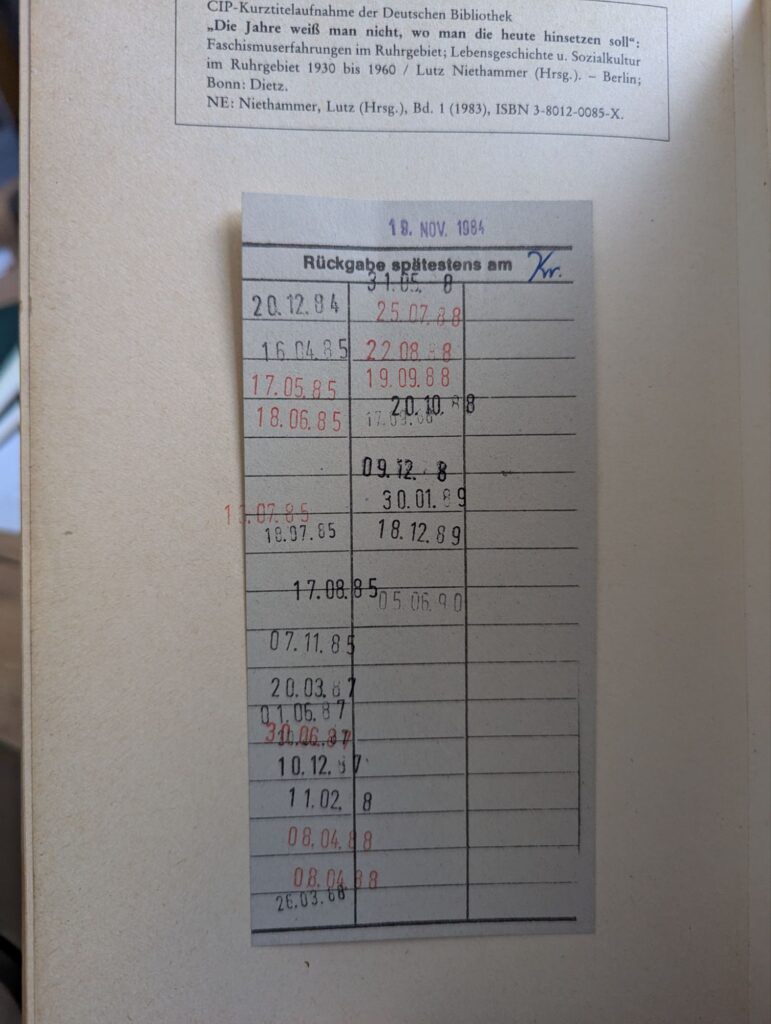 CIP-Kurztitelaufnahme der Deutschen Bibliothek
„Die Jahre weiß man nicht, wo man die heute hinsetzen soll“:
Faschismuserfahrungen im Ruhrgebiet; Lebensgeschichte u. Sozialkultur
im Ruhrgebiet 1930 bis 1960 / Lutz Niethammer (Hrsg.). – Berlin;
Bonn: Dietz.
NE: Niethammer, Lutz (Hrsg.), Bd. 1 (1983), ISBN 3-8012-0085-X.
19. NOV. 1984
Rückgabe spätestens am Kr.
20.12.84
16.04.85
17.05.85
18.06.85
18.07.85
17.08.85
07.11.85
20.03.87
01.06.87
30.06.87
10.12.87
11.02. 8
08.04.88
08.04.88
26.03.88
31.05. 8
25.07.88
22.08.88
19.09.88
20.10.88
09.12. 8
30.01.89
18.12.89
05.06.90